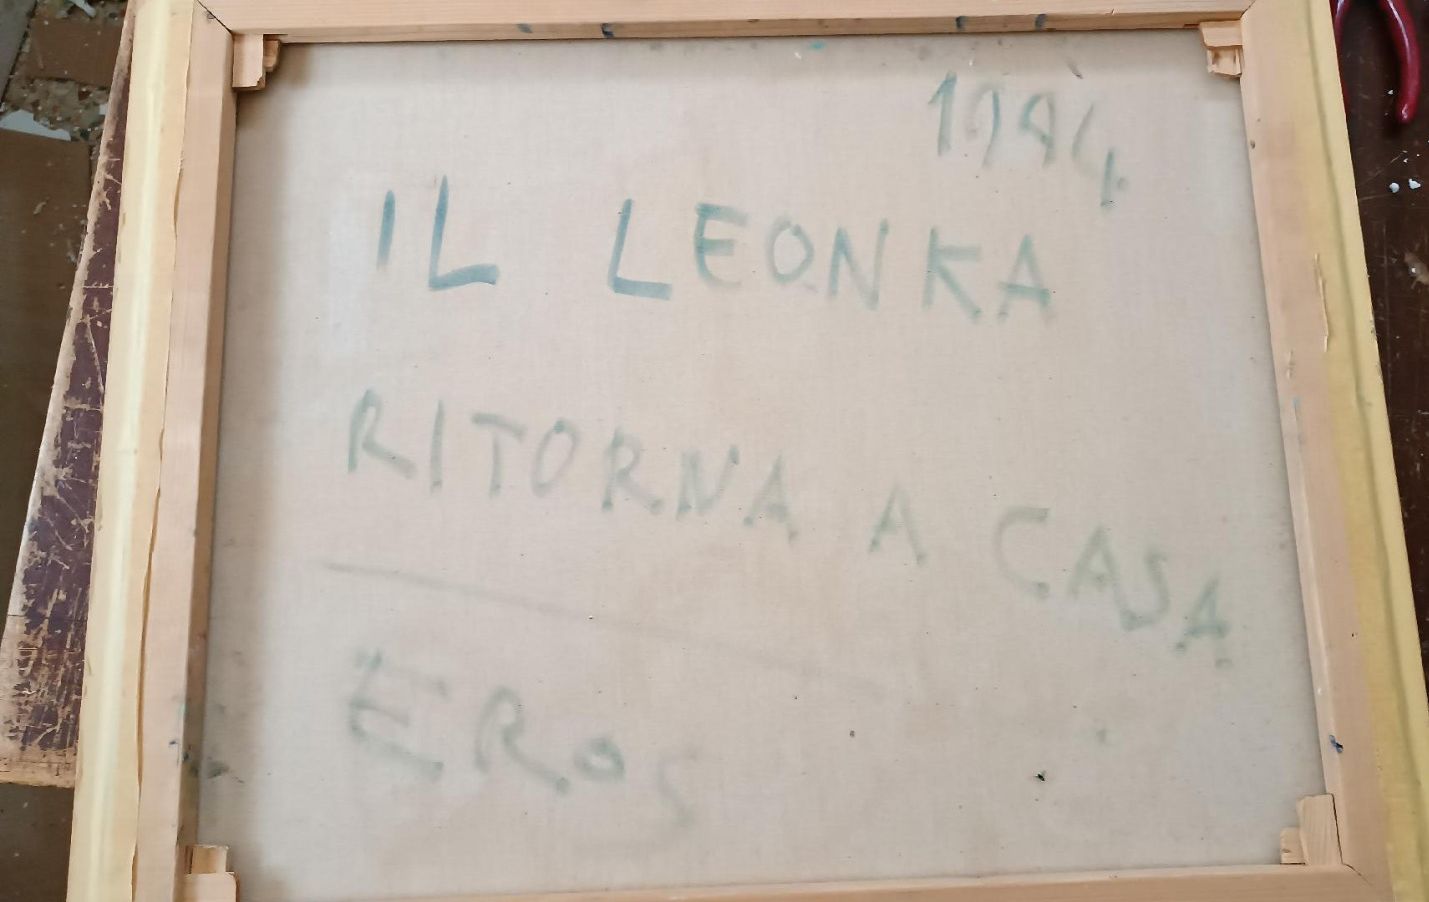 1994
IL LEONKA
RITORNA A CASA
EROS